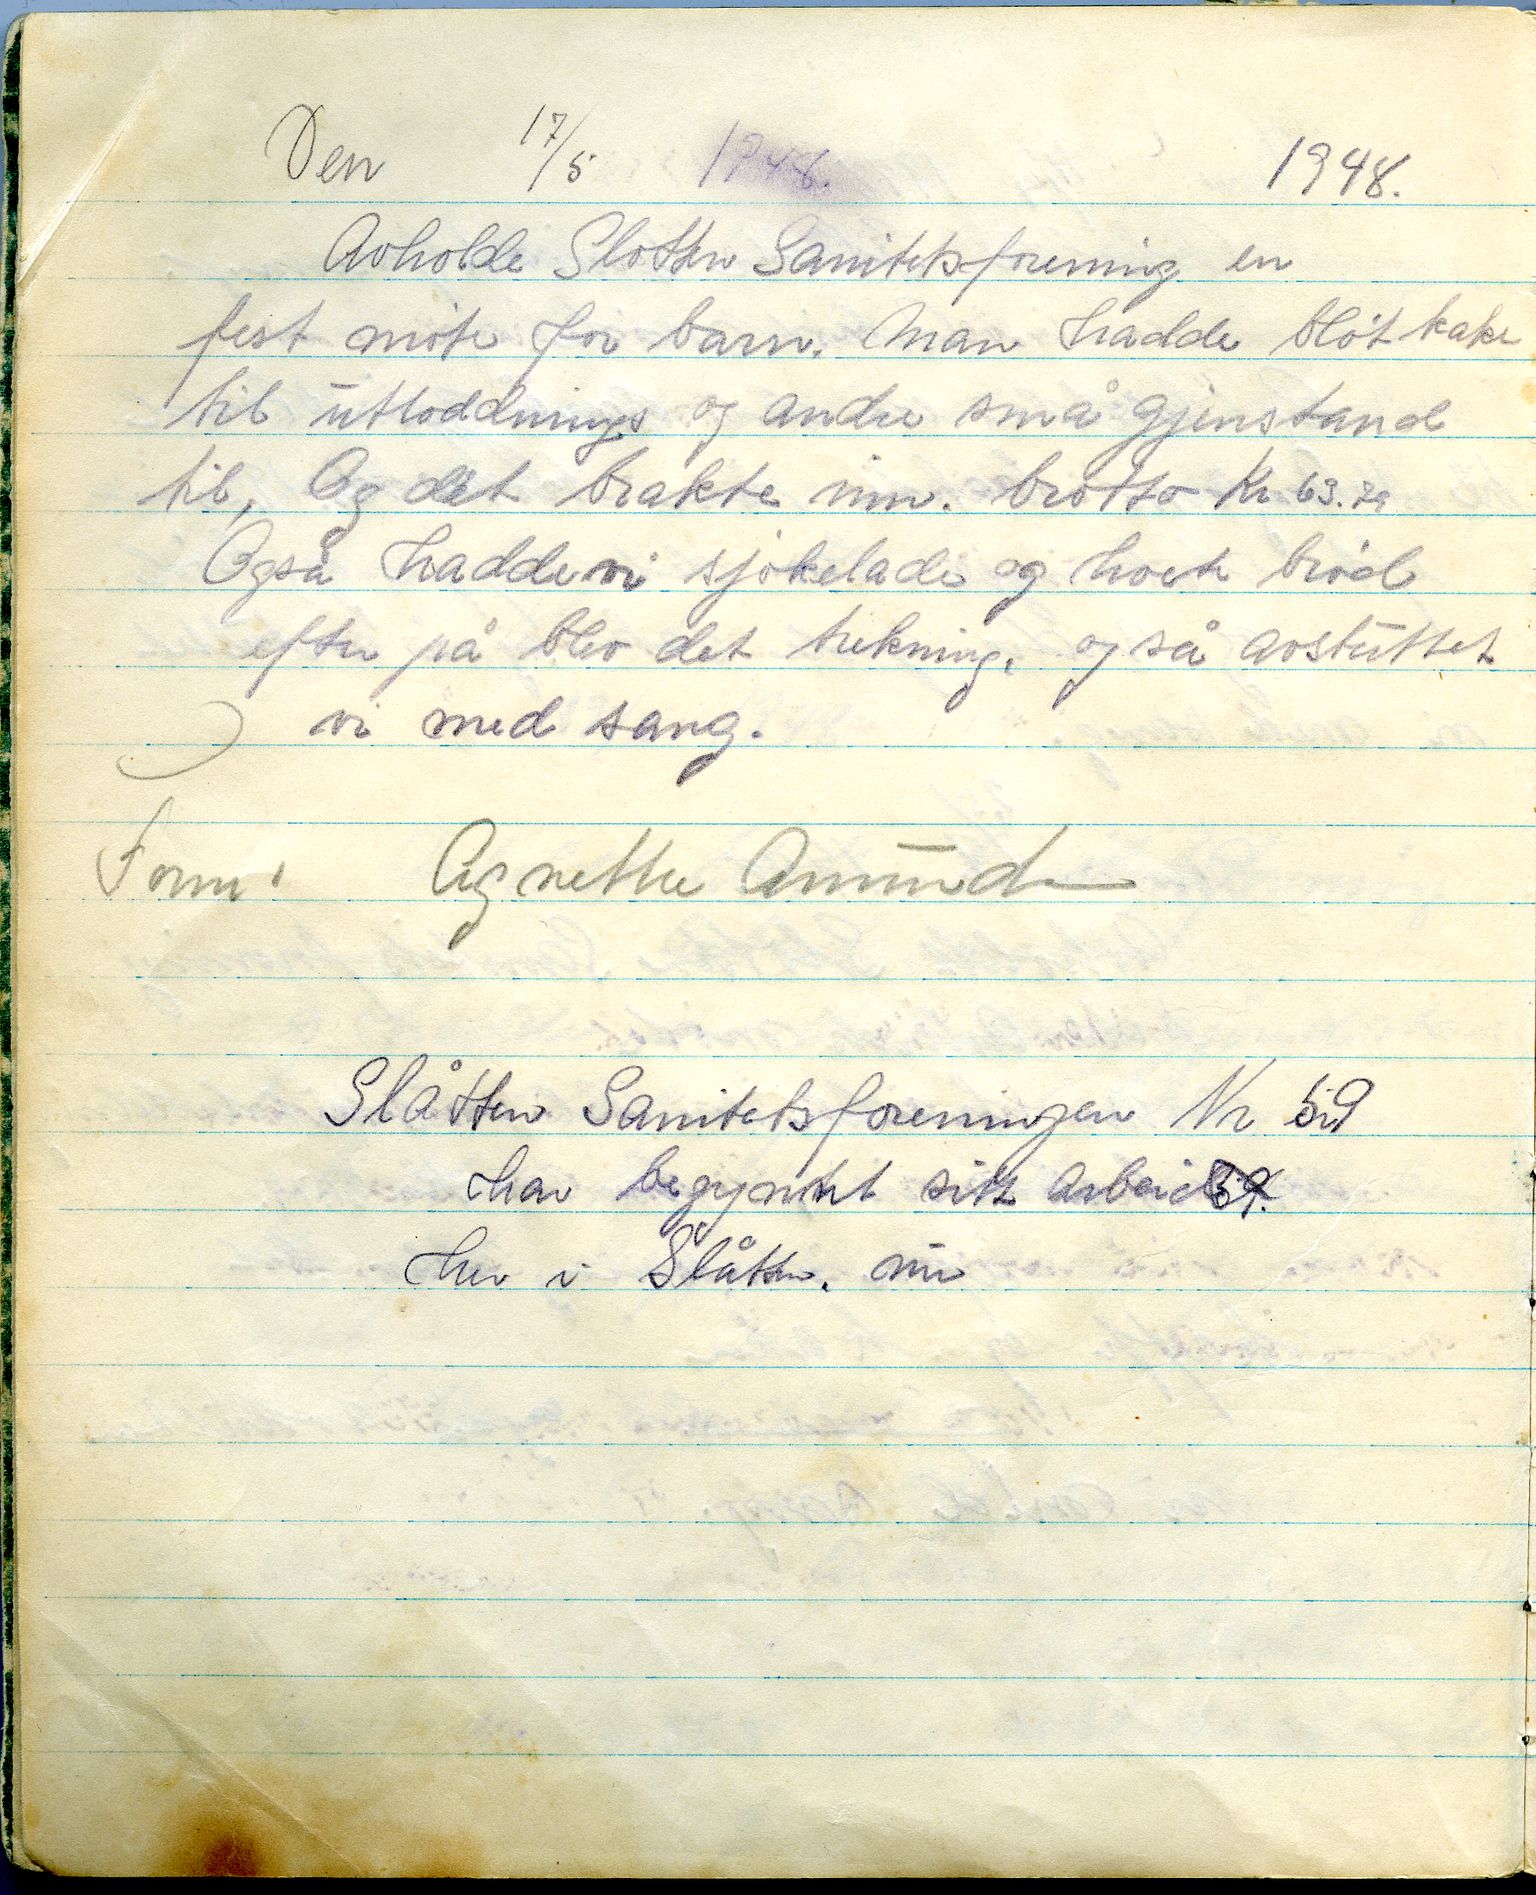 Den 17/5 1948. 1948.
Avholde Slotten Sanitetsforening en
fest møte for barn. Man hadde bløt kake
til utloddnings og andre små gjenstand
til, Og det brakte inn. brotto Kr 63.
Også hadde vi sjokelade og hvete brød
efter på blev det trekning, og så avsluttet
vi med sang.
Form: Agnethe Amund
Slåtten Sanitetsforeningen Nr 59
har begynnt sitt arbeid
her i Slåtten. nu